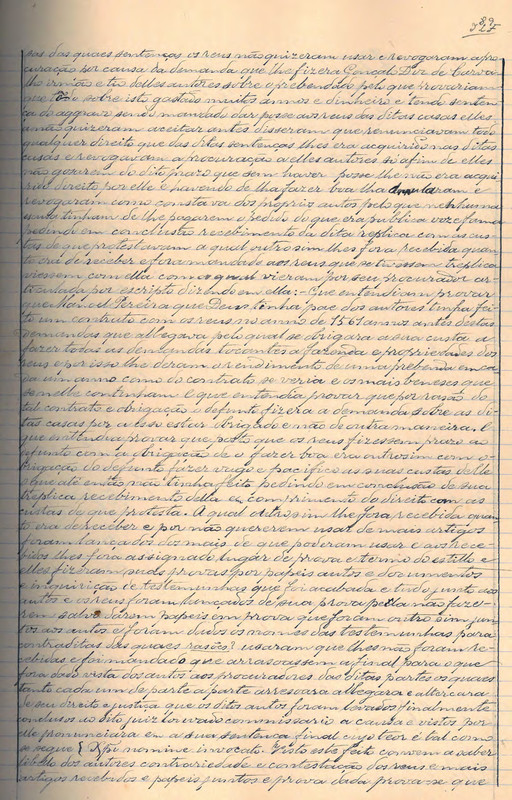 89
325
sas das quaes sentenças os reus não quizeram usar e revogaram a pro-
curação por causa da demanda que lhe fizera Gonçalo Dix de Carva-
lho irmão e tio delles autores sobre o prebendado pelo que provariam
que sobre isto gastaes muitos annos e dinheiro e tendo senten-
ça do aggravo sendo mandado dar posse aos reus das ditas casas elles
a não quizeram aceitar antes disseram que renunciavam todo
qualquer direito que das ditas sentenças lhes era acquirido nas ditas
casas e revogavam a procuração a elles autores so afim de elles
não gosarem do dito prazo que sem haver posse lhe não era acqui-
rido direito por elle e havendo de lha fazer boa lha annularam e
revogaram como constava dos proprios autos pelo que nenhuma
rasão tinham de lhe negarem o pedido do que era publica voz e fama
pedindo em conclusão recebimento da dita replica com as cus-
tas de que protestavam a qual outro sim lhes fora recebida quan-
to era de receber e fora mandado aos reus que se tivessem treplica
viessem com ella com a qual vieram por seu procurador ar-
ticulada por escripto dizendo em ella: - Que entendiam provar
que Manoel Pereira que Deus tinha pae dos autores tinha fei-
to um contrato com os reus no anno de 1561 annos antes destas
demandas que allegava pelo qual se obrigara a sua custa a
fazer todas as demandas tocantes a fazenda e propriedades dos
reus e por isso lhe deram o rendimento de uma prebenda em ca-
da um anno como do contrato se veria e os mais beneses que
se nelle continham. E que entendia provar que por rasão do
tal contrato e obrigação o defunto fizera a demanda sobre as di-
tas casas por a isso estar obrigado e não de outra maneira. E
que entendia provar que posto que os reus fizessem prazo ao
defunto com a obrigação de o fazer boa era outrosim com o-
brigação do defunto fazer vago e pacifico as suas custas delle
o que até então não tinha feito pedindo em conclusão de sua
treplica recebimento della e comprimento do direito com as
custas de que protesta. A qual outrosim lhe fora recebida quan-
to era de receber e por não quererem usar de mais artigos
foram lançados dos mais de que poderam usar e aos rece-
bidos lhes fora assignado lugar de prova e termo do estillo e
elles fizeram suas provas por papeis autos e documentos
e inquirição de testemunhas que fora acabada e tudo junto aos
autos e os reus foram lançados de sua prova pella não faze-
rem salvo darem papeis em prova que foram outro sim jun-
tos aos autos e foram dados os nomes das testemunhas para
contraditas das quaes rasões? usaram que lhes não foram re-
cebidas e foi mandado que arrasoassem a final para o que
fora dado vista dos autos aos procuradores das ditas partes os quaes
tanto cada um de parte a parte arresoara allegara e altercara
de seu direito e justiça que os ditos autos foram levados finalmente
conclusos ao dito juiz louvado commissario a causa e vistos por
elle pronunciara em a sua sentença final cujo teor é tal como
se segue { Xpi nomine invocato. Visto este feito convem a saber
libello dos autores contrariedade e contestação dos reus e mais
artigos recebidos e papeis juntos e prova dada prova-se que